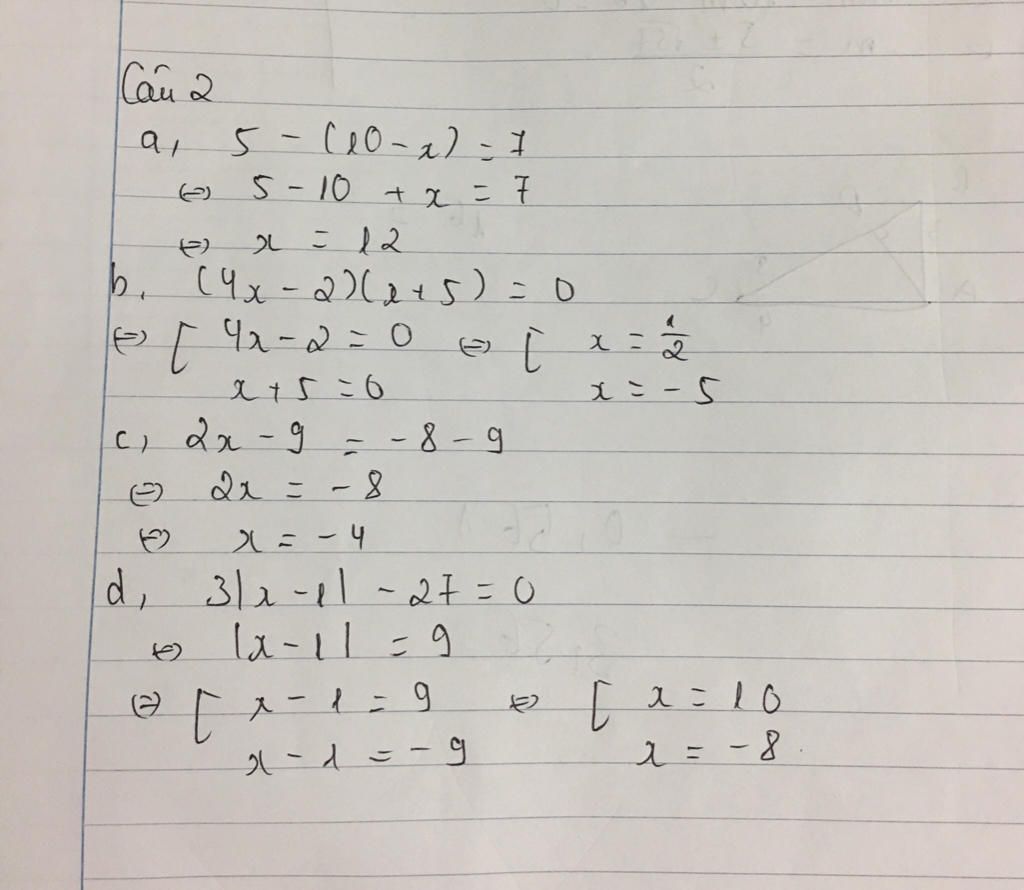 Câu 2
a, 5 - (10 - x) = 7
⇔ 5 - 10 + x = 7
⇔ x = 12
b, (4x - 2)(x + 5) = 0
⇔ [ 4x - 2 = 0 ⇔ [ x = 1/2
x + 5 = 0 x = - 5
c, 2x - 9 = - 8 - 9
⇔ 2x = - 8
⇔ x = - 4
d, 3|x - 1| - 27 = 0
⇔ |x - 1| = 9
⇔ [ x - 1 = 9 ⇔ [ x = 10
x - 1 = - 9 x = - 8.